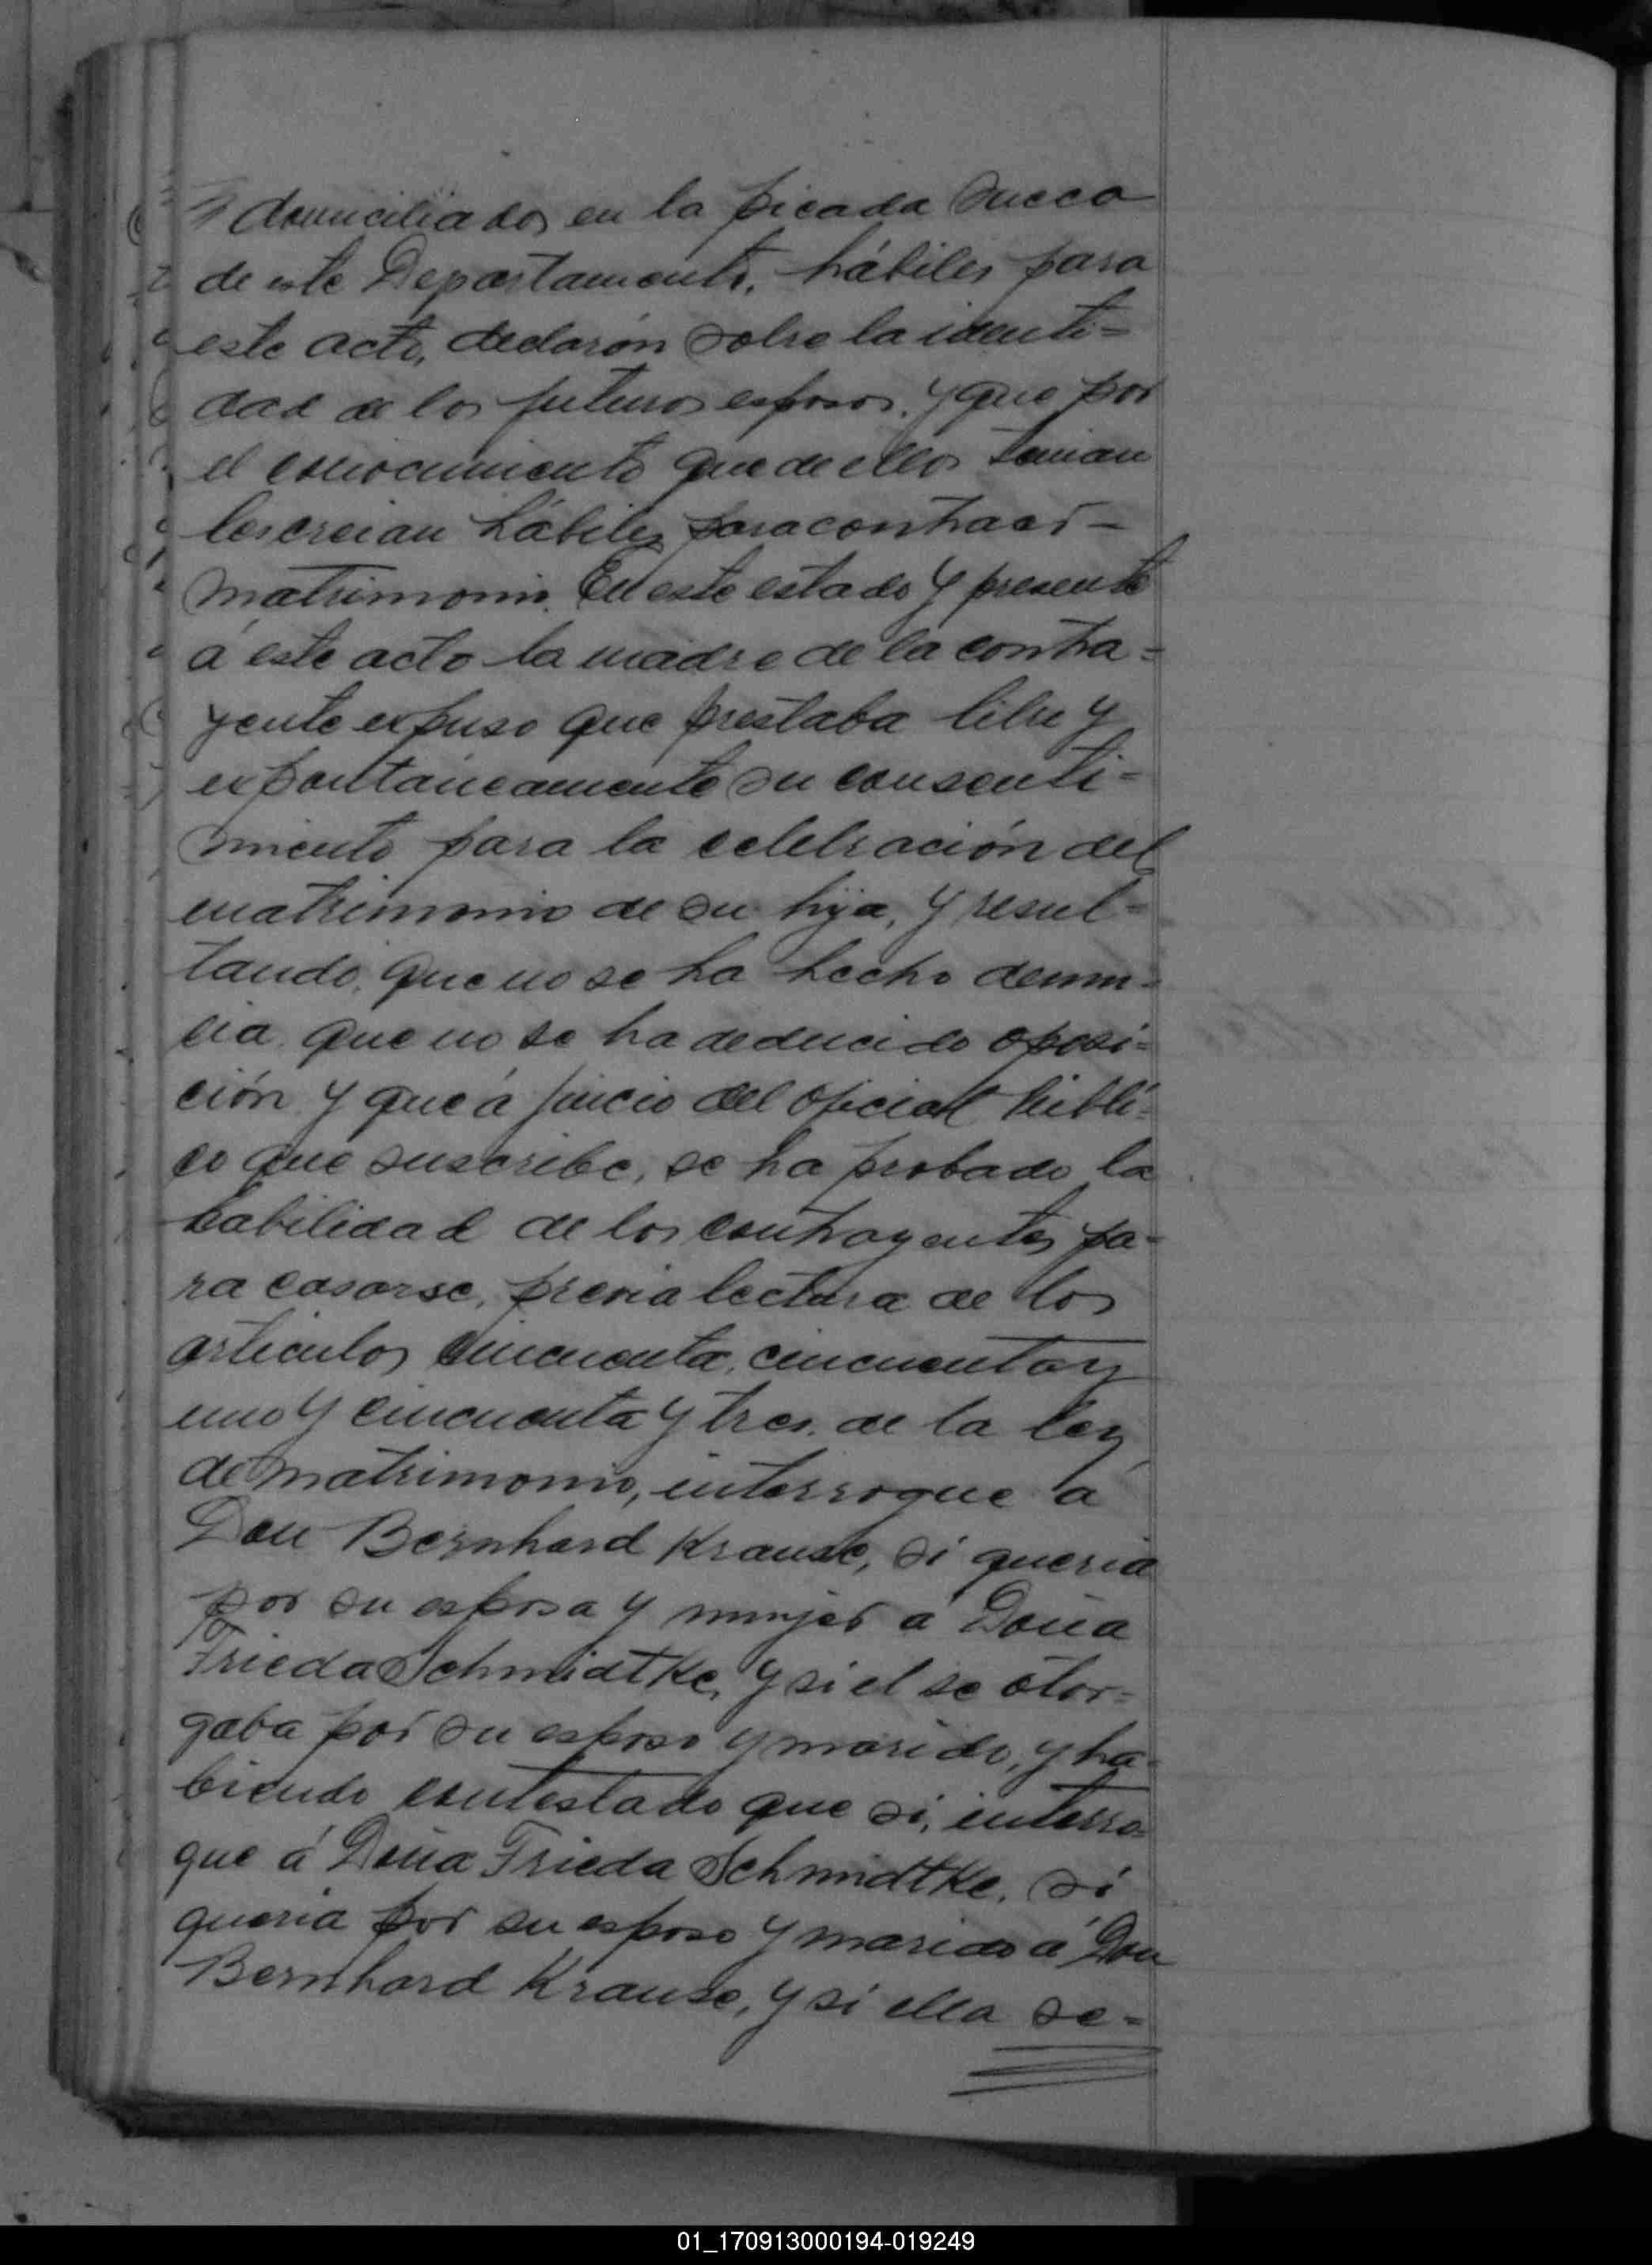 domiciliados en la picada Sueca
de este Departamento, hábiles para
este acto, declarón sobre la identi=
dad de los futuros esposos, y que por
el conocimiento que de ellos tenian
los creian hábiles para contraer -
matrimonio. En este estado y presente
á este acto la madre de la contra=
yente expuso que prestaba libre y
expontáneamente su consenti=
miento para la celebración del
matrimonio de su hija, y resul=
tando, que no se ha hecho denun=
cia, que no se ha deducido oposi=
ción y que á juicio del oficial Públi=
co que suscribe, se ha probado la
habilidad de los contrayentes pa=
ra casarse, previa lectura de los
articulos cincuenta, cincuenta y
uno y cincuenta y tres, de la ley
de matrimonio, interrogue á
Don Bernhard Krause, si queria
por su esposa y mujer á Doña
Frieda Schmidtke, y si el se otor=
gaba por su esposo y marido, y ha=
biendo contestado que si, interro=
gue á Doña Frieda Schmidtke, si
queria por su esposo y marido á Don
Bernhard Krause, y si ella se=
01_170913000194-019249